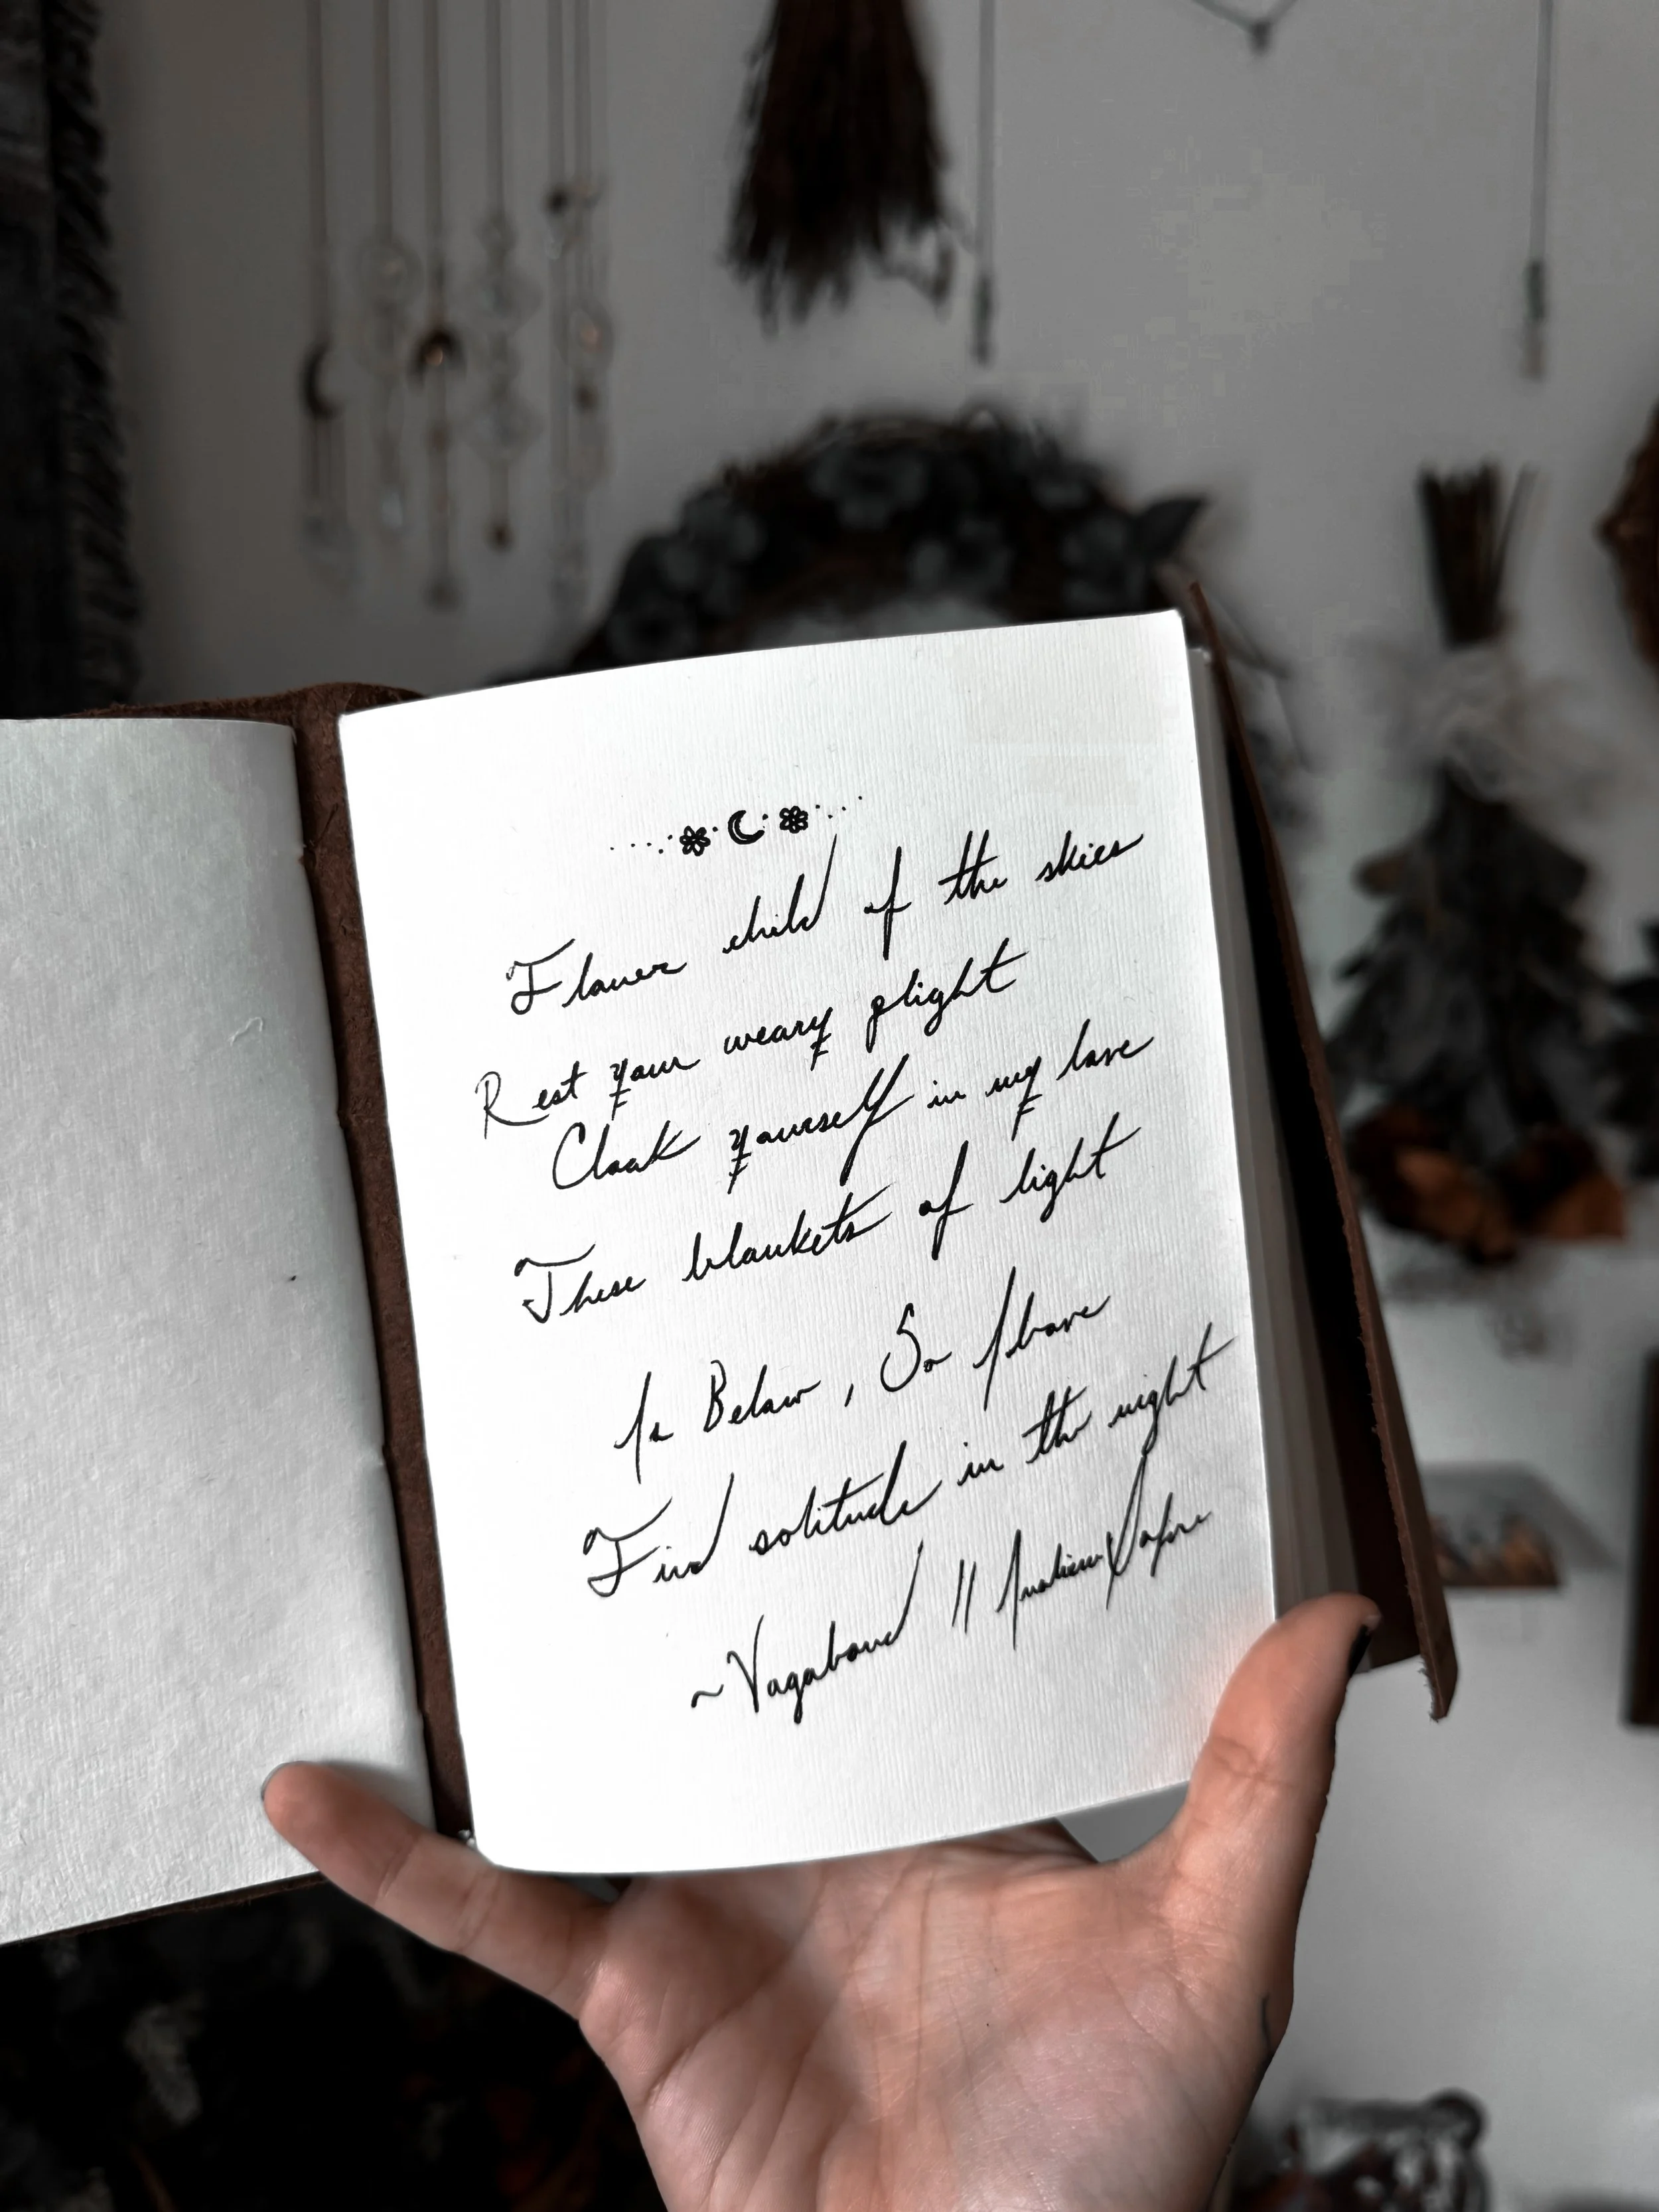 Flower child of the skies
Rest your weary plight
Cloak yourself in my love
These blankets of light
As Below, So Above
Find solitude in the night
~Vagabond ||